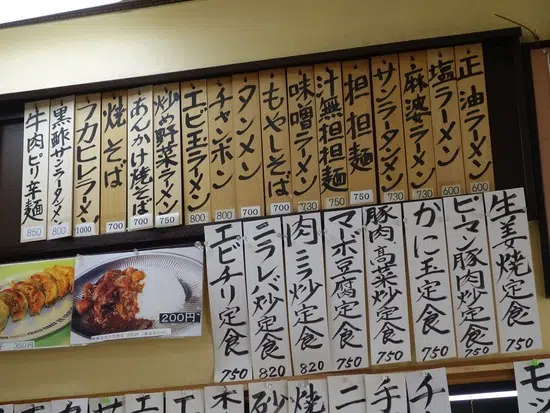 正油ラーメン 600
塩ラーメン 600
麻婆ラーメン 730
サンラータンメン 730
担担麺 750
汁無担担麺 750
味噌ラーメン 730
もやしそば 700
タンメン 700
チャンポン 800
エビ玉ラーメン 800
炒め野菜ラーメン 750
あんかけ焼そば 700
焼そば 700
フカヒレラーメン 1000
黒酢サンラータンメン 800
牛肉ピリ辛麺 850
生姜焼定食 750
ピーマン豚肉炒定食 750
かに玉定食 750
豚肉高菜炒定食 750
マーボ豆腐定食 750
肉ニラ炒定食 820
ニラレバ炒定食 820
エビチリ定食 750
200円
350円